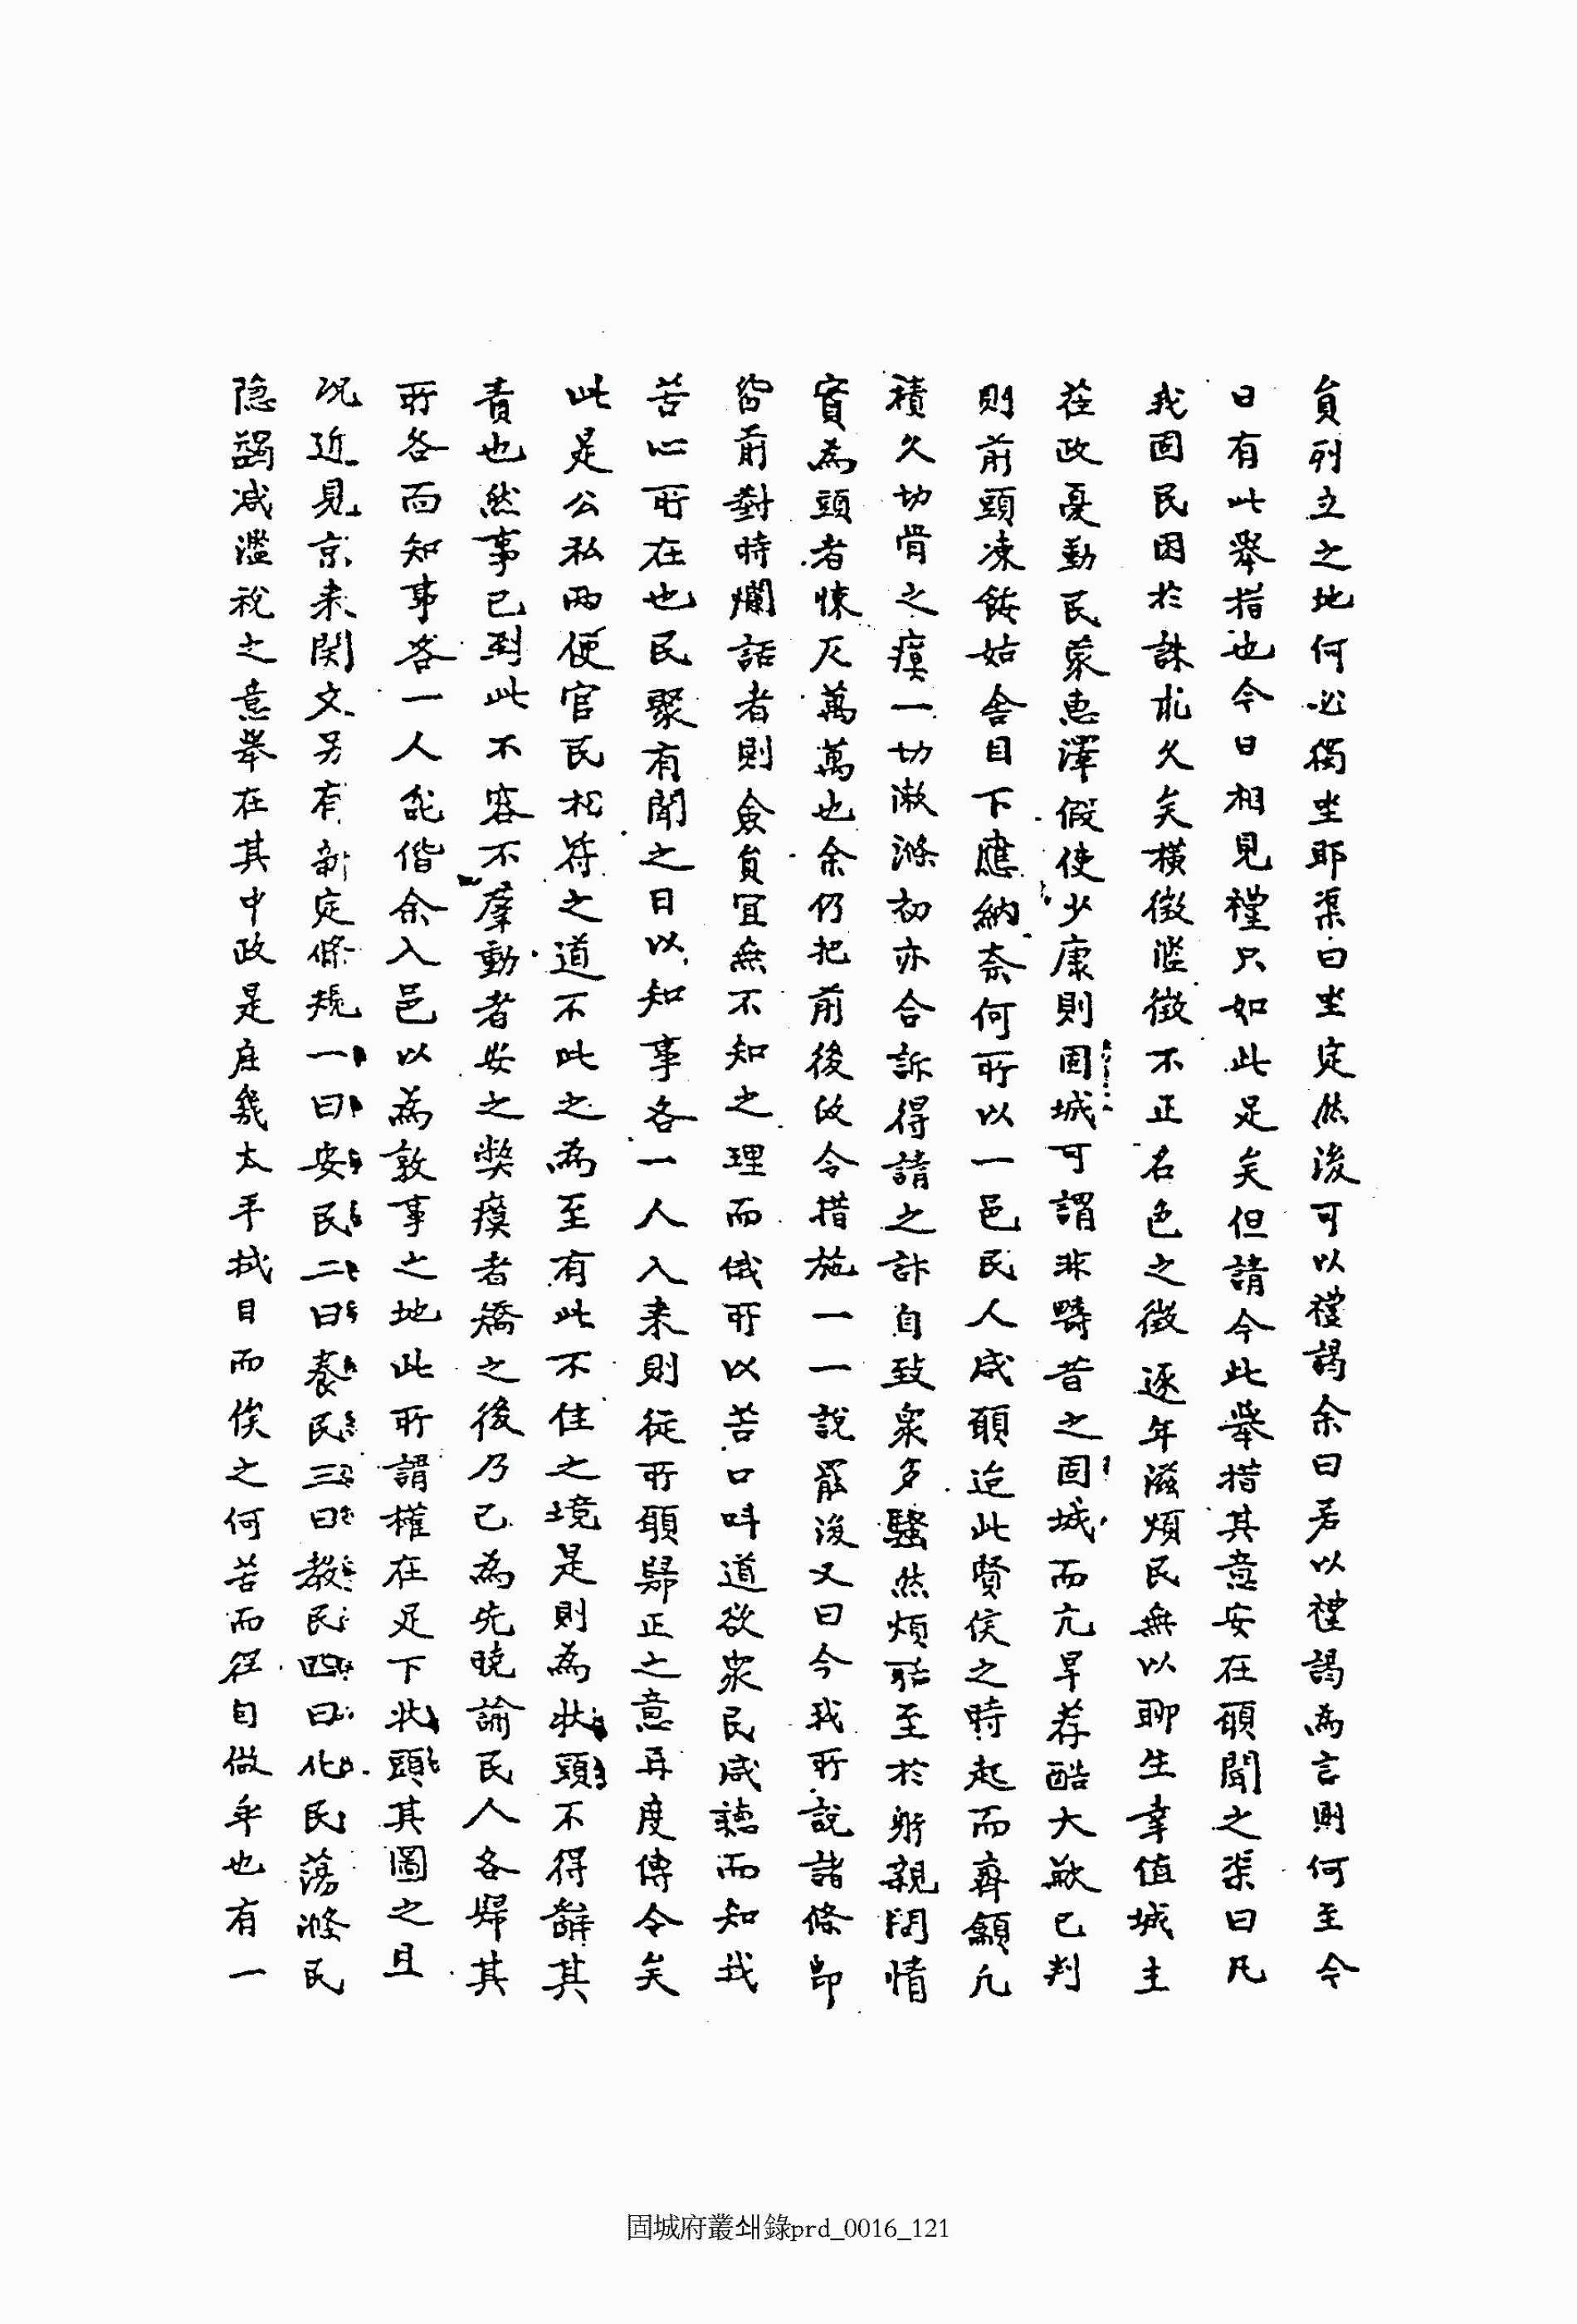 員列立之地何必獨坐耶渠曰坐定然後可以禮謁余曰若以禮謁爲言則何至今
日有此擧措也今日相見禮只如此足矣但請今此擧措其意安在願聞之渠曰凡
我固民困於誅求久矣橫徵濫徵不正名色之徵逐年滋煩民無以聊生幸値城主
莅政憂勤民蒙惠澤假使少康則固城可謂非疇昔之固城而亢旱荐酷大歉已判
則前頭凍餒姑舍目下應納奈何所以一邑民人咸願迨此賢侯之時起而齊籲凡
積久切骨之瘼一切漱滌初亦合訴得請之計自致衆多騷然煩聒至於躬親閱情
實爲頭者悚仄萬萬也余仍把前後政令措施一一說罷後又曰今我所說諸條即
曾前對時爛話者則僉員宜無不知之理而俄所以苦口叫道欲衆民咸聽而知我
苦心所在也民聚有聞之日以知事各一人入来則從所願歸正之意再度傳令矣
此是公私兩便官民相符之道不此之爲至有此不佳之境是則爲狀頭不得辭其
責也然事已到此不容不羣動者安之弊瘼者矯之後乃已爲先曉諭民人各歸其
所各面知事各一人能偕余入邑以爲敦事之地此所謂權在足下狀頭其圖之且
况近見京来関文另有新定條規一曰安民二曰養民三曰教民四曰化民蕩滌民
隐蠲减濫稅之意擧在其中政是庶幾太平拭目而俟之何苦而徑自做乎也有一
固城府叢쇄錄prd_0016_121